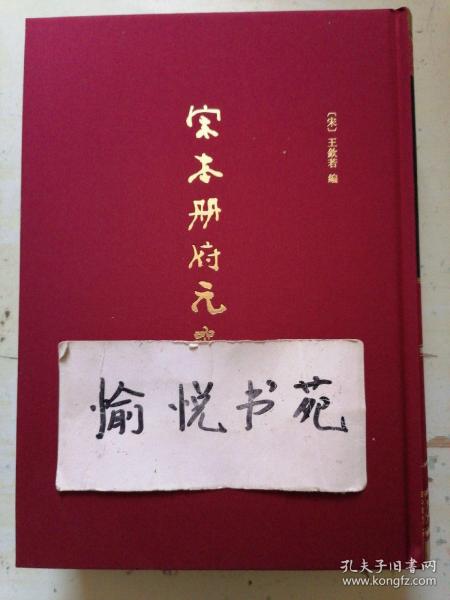 〔宋〕王欽若 編
宋本册府元
愉悦书苑
孔夫子旧书网
www.kongfz.com